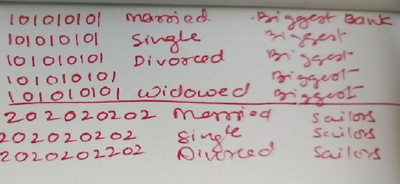 101010101 married .Biggest Bank
101010101 Single Biggest
101010101 Divorced Biggest
101010101 Biggest
101010101 widowed Biggest
202020202 married sailors
202020202 Single sailors
2020202202 Divorced sailors